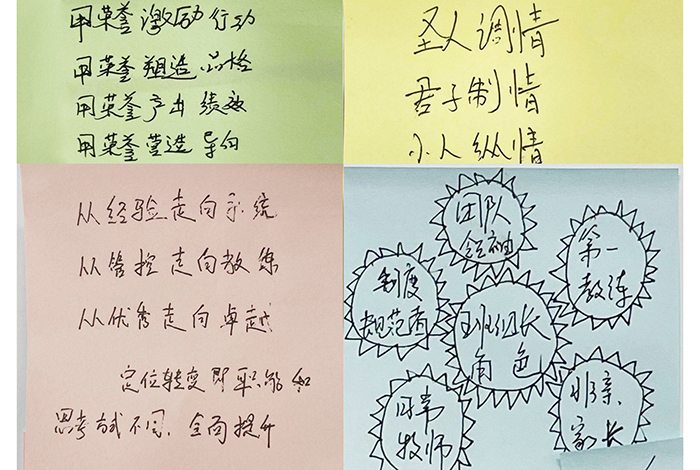 用荣誉激励行动
用荣誉塑造品格
用荣誉产出绩效
用荣誉营造导向
圣人调情
君子制情
小人纵情
从经验走向系统
从管控走向教练
从优秀走向卓越
定位转变即职能和
思考方式不同、全面提升
团队
领袖
第一
教练
制度
规范者
班组长
角色
师
家长